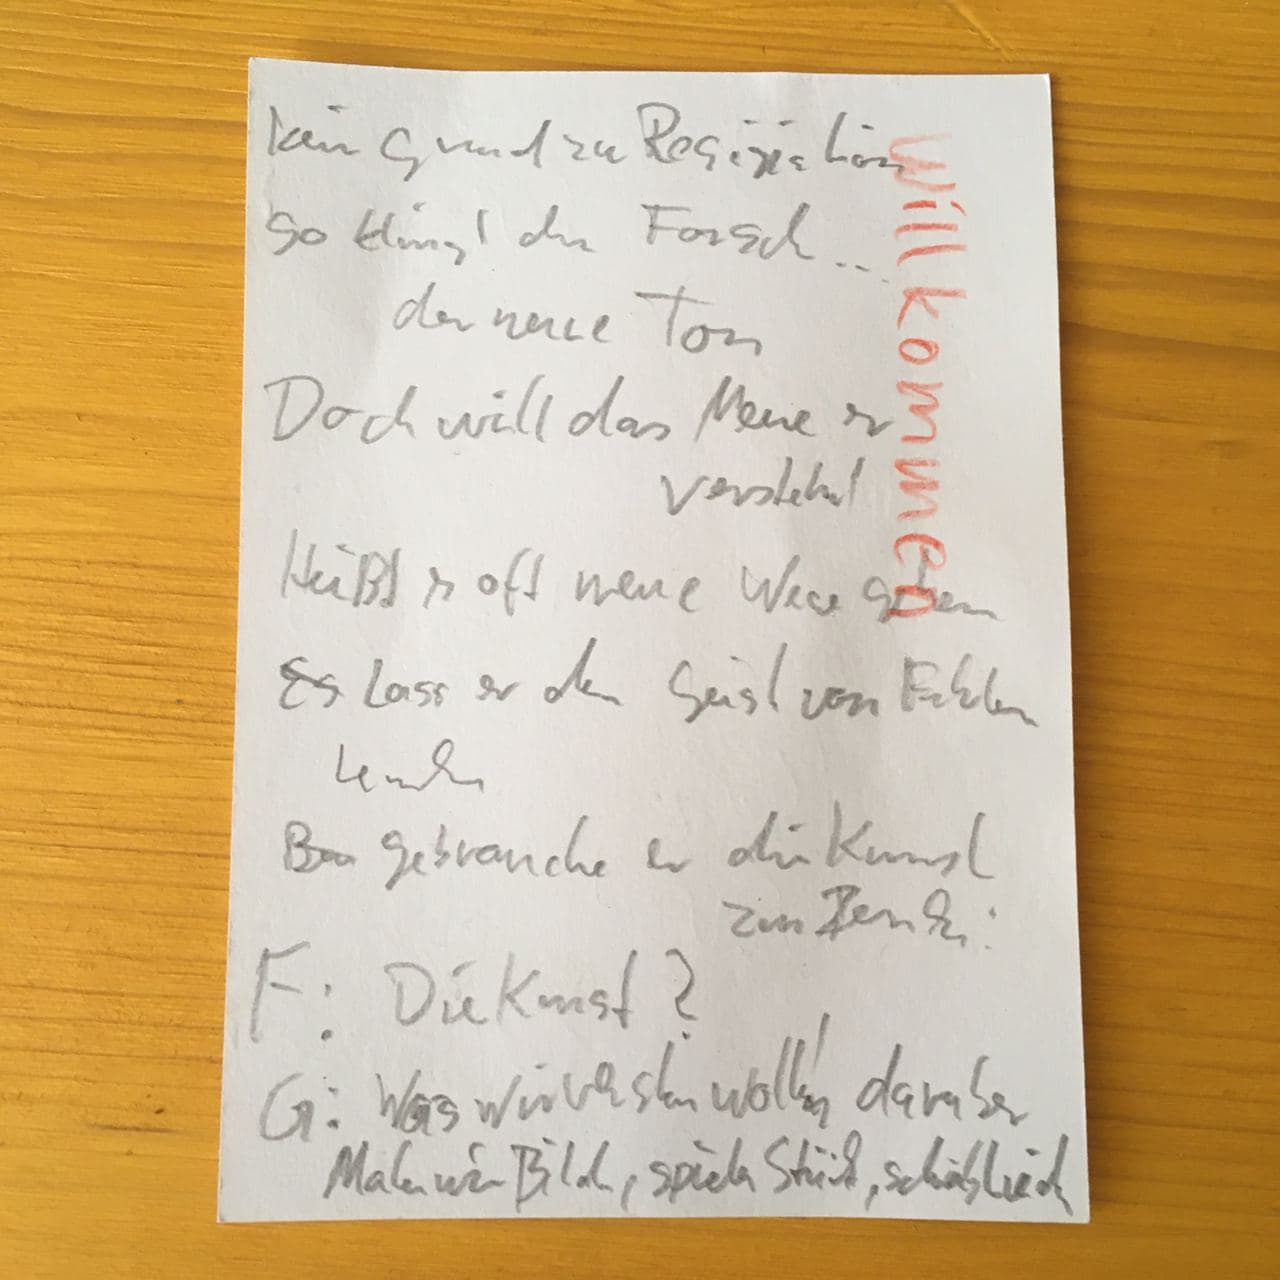 kein Grund zu Resignation
So klingt der Forsch...
der neue Ton
Doch will das Neue er
verstehn
Heißt es oft neue Wege gehen
Es lass er den Geist von Fehlern
lenken
gebrauche er die Kunst
zum Denken:
F: Die Kunst?
G: Was wir verstehn wolln, darüber
Malen wir Bilder, spielen Stück, schreiben
Willkommen